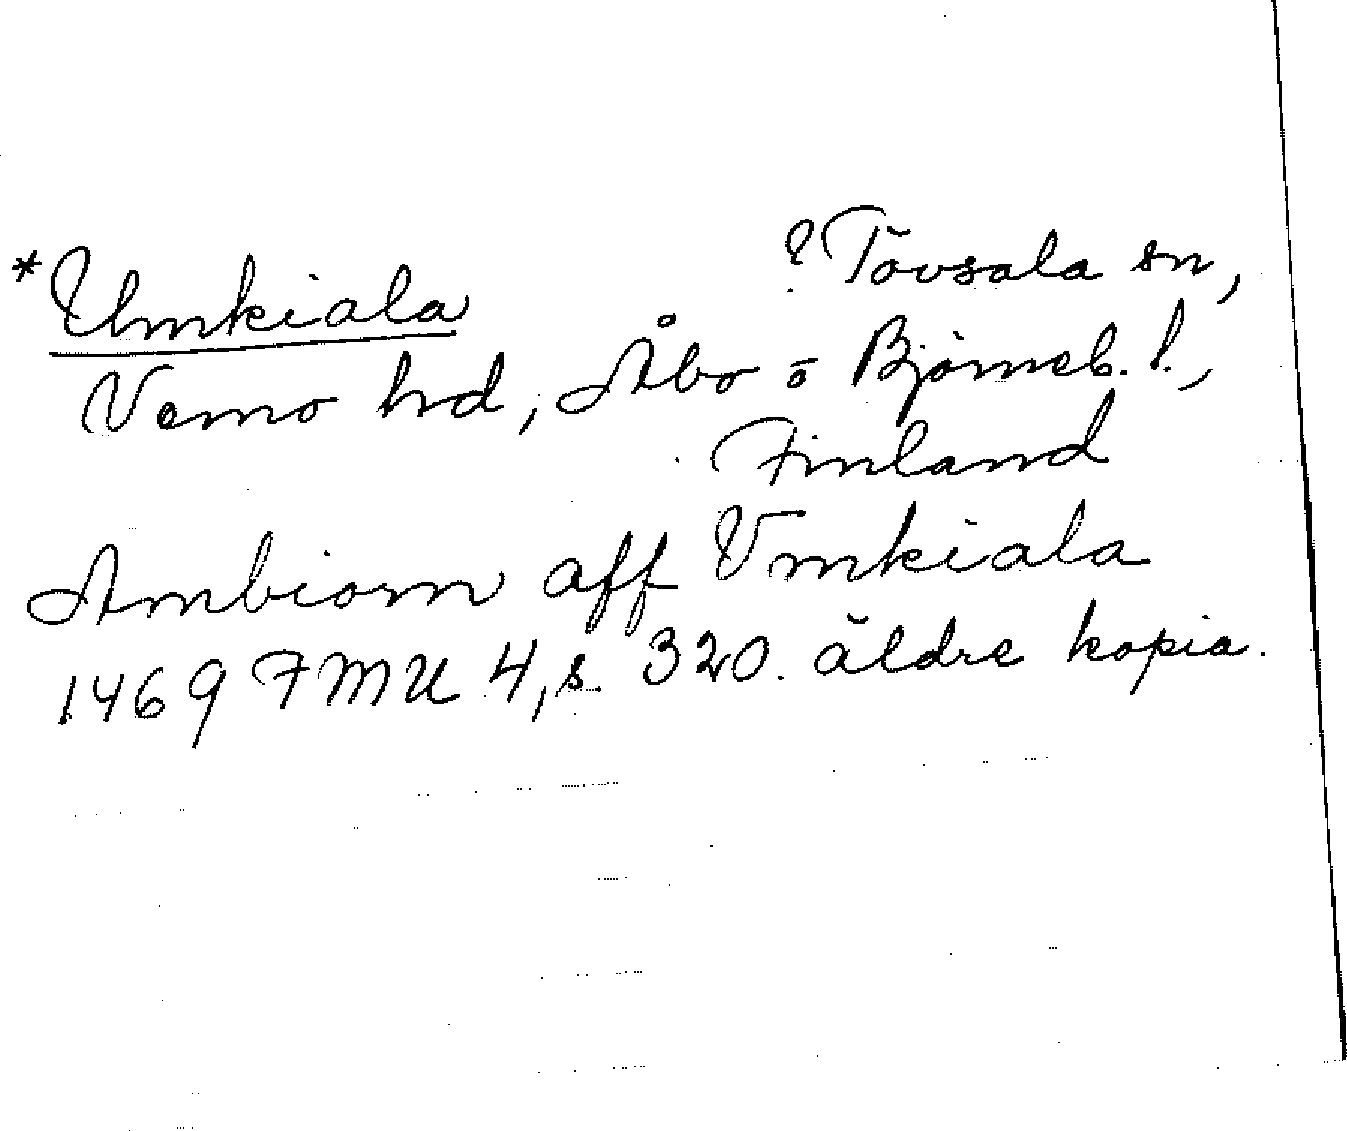 *Umkiala ? Tövsala sn,
Vemo hd, Åbo o Björneb. l.,
Finland
Arnbiorn aff Vmkiala
1469 FMU 4, s 320. äldre kopia.